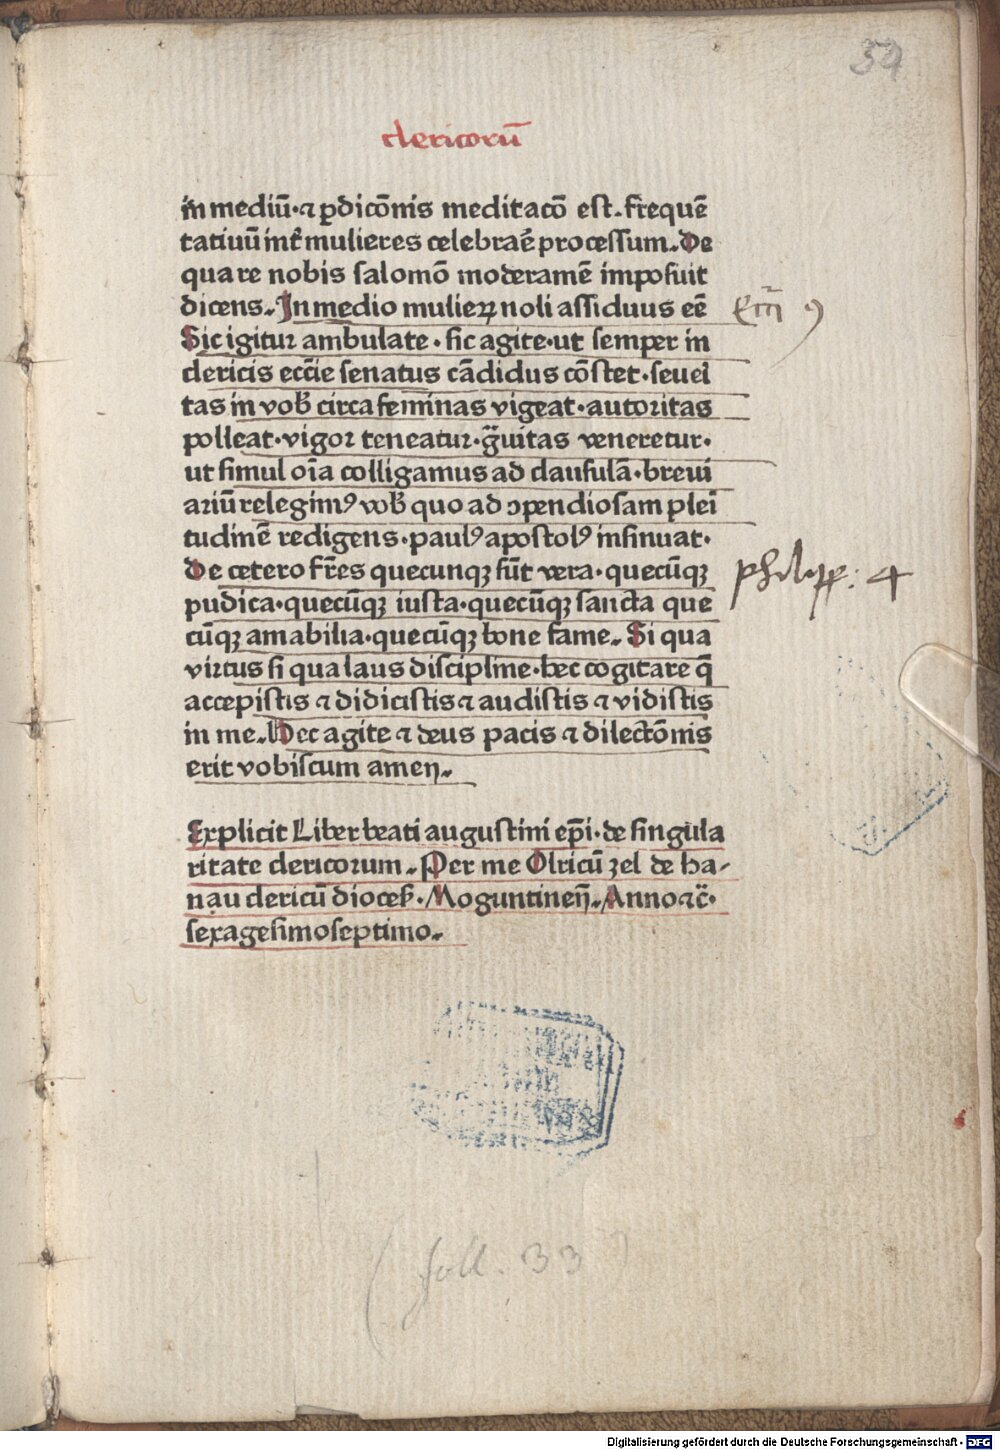 59
clericorū
in mediū·⁊ ꝑdicōnis meditacō est. frequē
tatiuū int̉ mulieres celebrāe processum. De
qua re nobis salomō moderamē imposuit
dicens. In medio mulierꝝ noli assiduus eē
Sic igitur ambulate· sic agite·ut semper in
clericis ecc̄ie senatus cādidus cōstet· seuei
tas in vob̄ circa feminas vigeat·autoritas
polleat·vigor teneatur·g̃uitas veneretur·
ut simul oīa colligamus ad clausulā·breui
ariū relegimꝰ vob̄ quo ad ↄpendiosam pleī
tudinē redigens·paulꝰ apostolꝰ insinuat·
De cetero fr̄es quecunqꝫ sūt vera·quecūqꝫ
pudica·quecūqꝫ iusta·quecūqꝫ sancta que
cūqꝫ amabilia·quecūqꝫ bone fame. Si qua
philipp: 4
virtus si qua laus discipline·hec cogitare q̄
accepistis ⁊ didicistis ⁊ audistis ⁊ vidistis
in me. Hec agite ⁊ deus pacis ⁊ dilectōnis
erit vobiscum amen.
Explicit Liber beati augustini ep̄i·de singula
ritate clericorum. Per me Olricū zel de ha-
nau clericū diocesꝭ· Moguntineñ. Anno ⁊c̄·
sexagesimoseptimo.
(foll. 33)
Digitalisierung gefördert durch die Deutsche Forschungsgemeinschaft - DFG